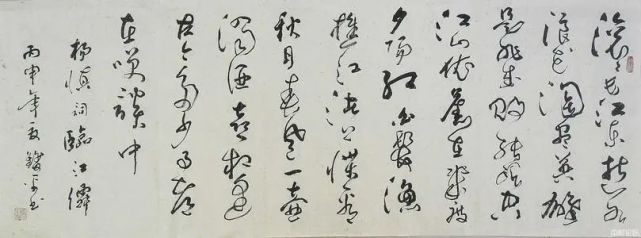 滚々长江东逝水
浪花淘尽英雄
是非成败转头空
江山依舊在几度
夕阳红白髮漁
樵江渚上惯看
秋月春风一壶
浊酒喜相逢
古今多少事都
在笑谈中
杨慎词臨江僊
丙申年夏 书